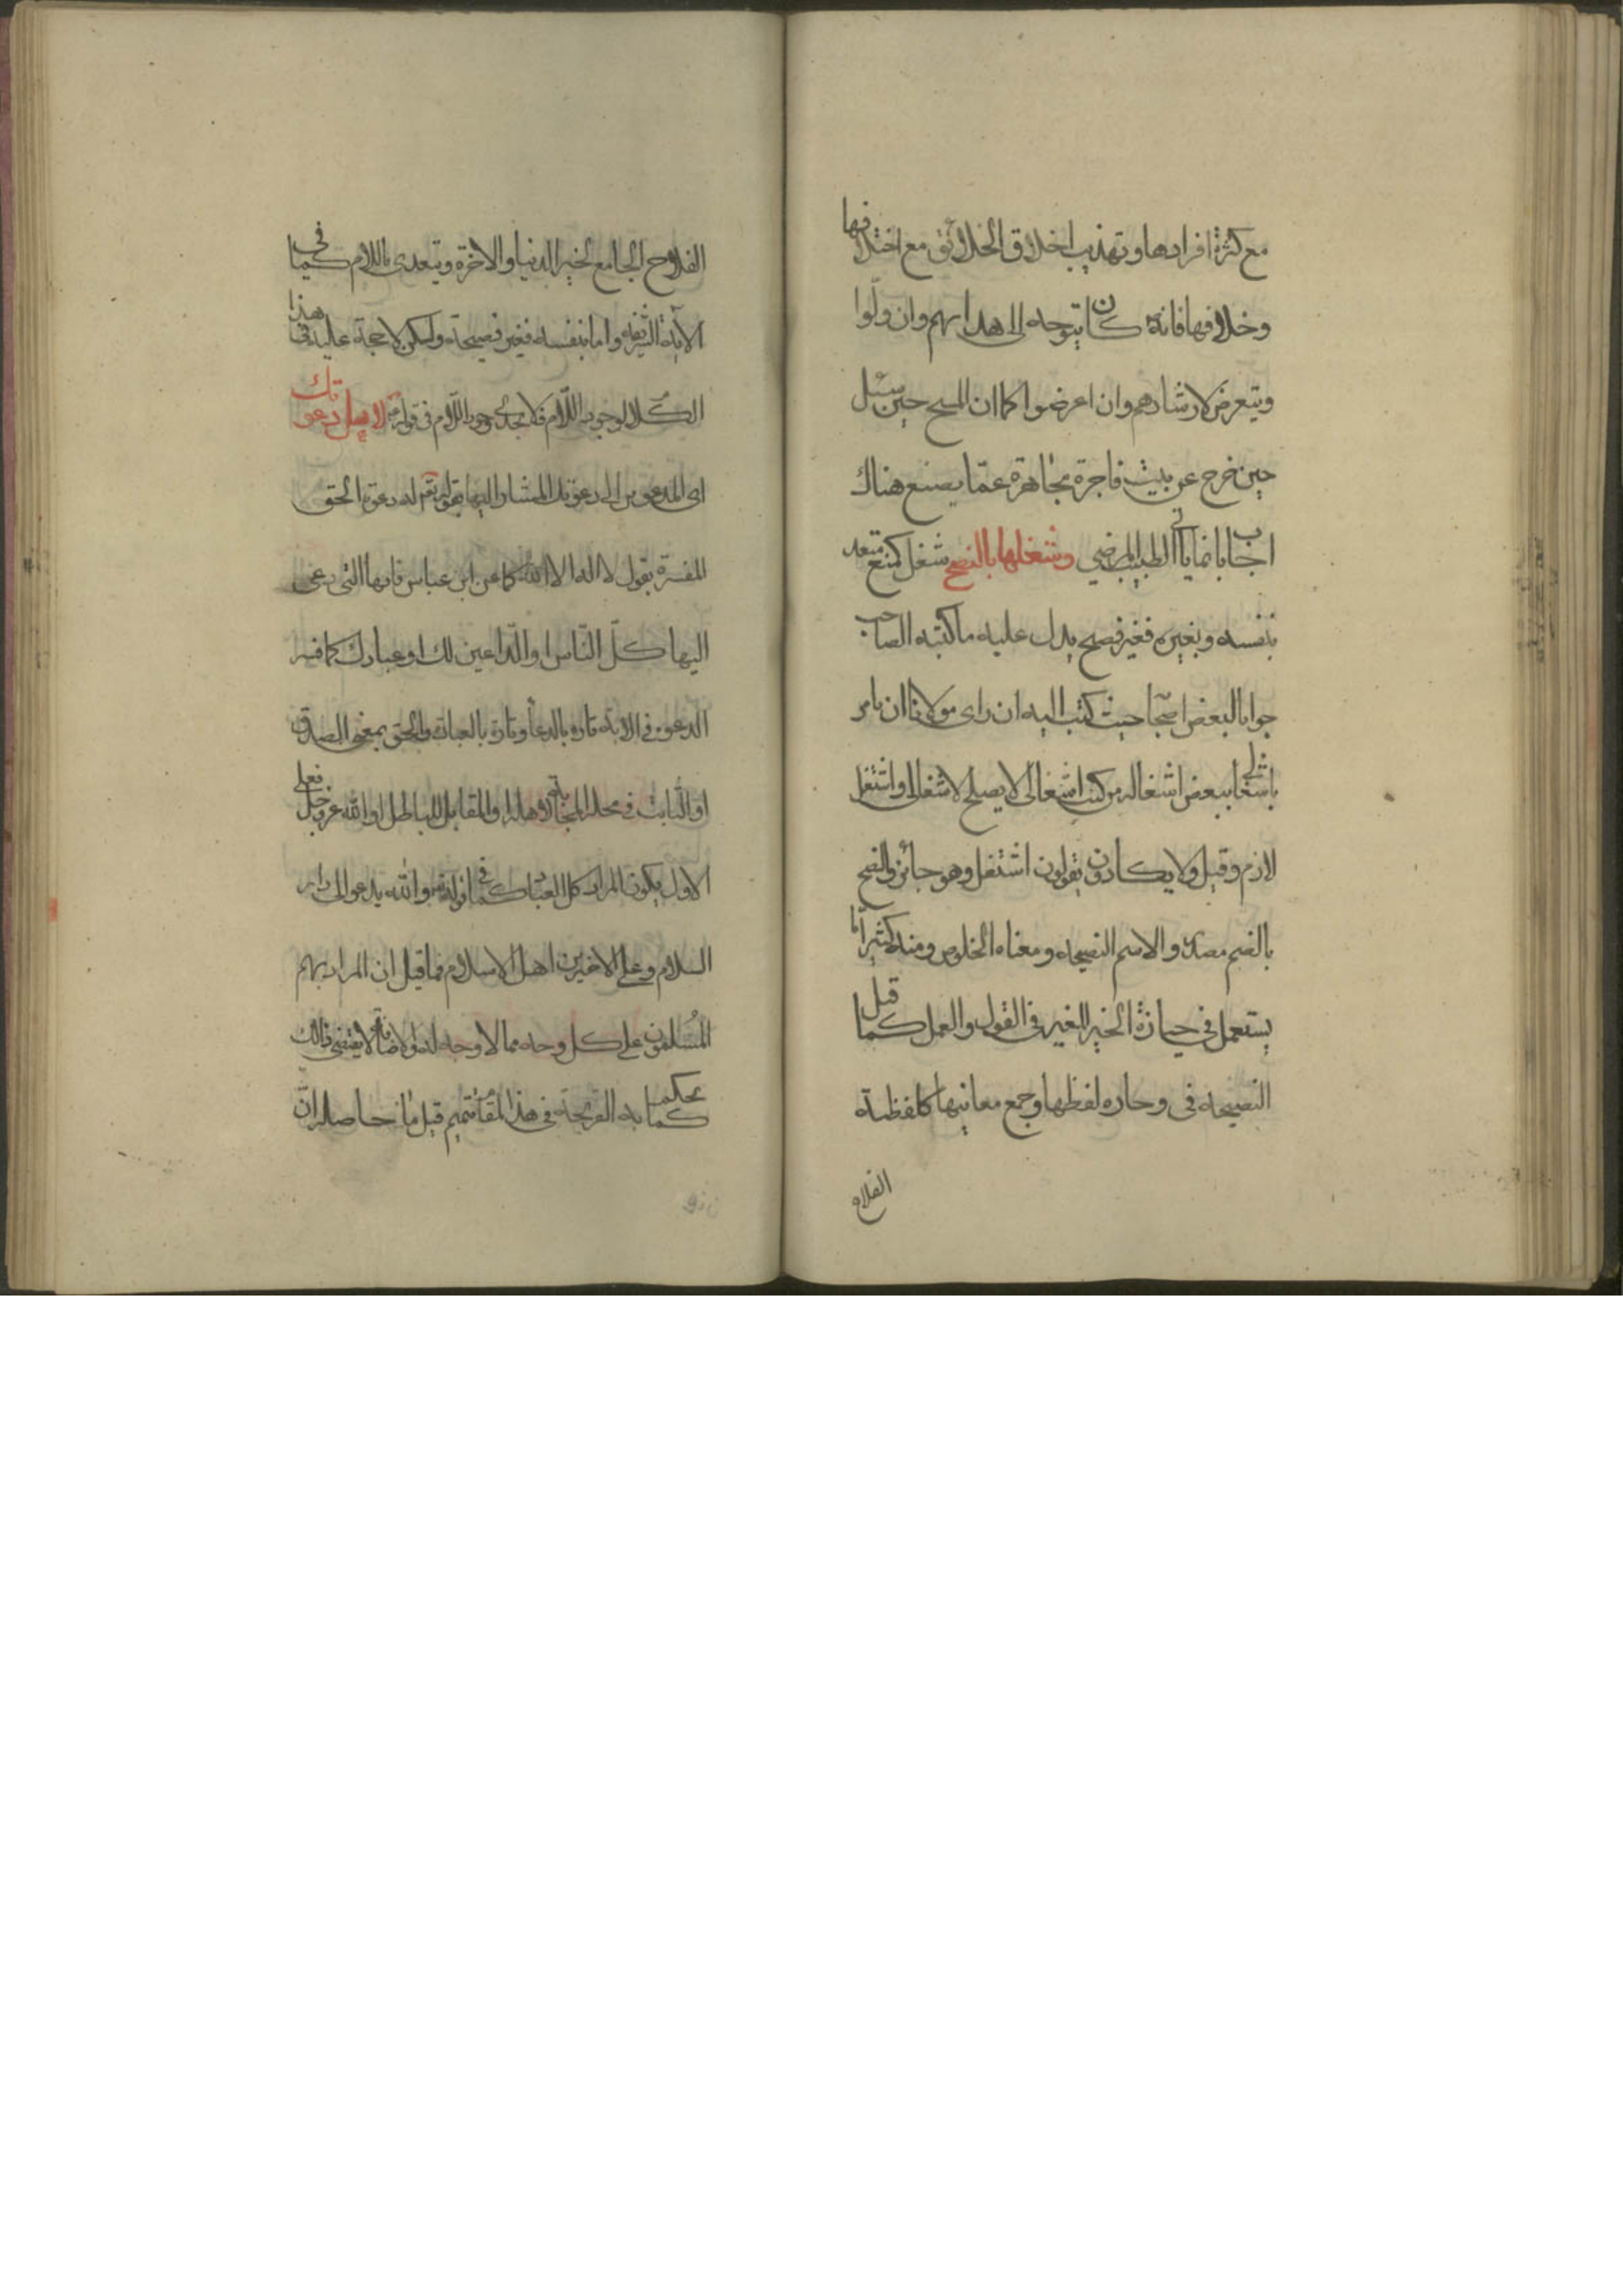 مع كثرة افرادها وتهذيب اخلاق الخلائق مع اختلافها
وخلافها فانه كان يتوجه الى هدايهم وان ولّوا
ويتعرض لارشادهم وان اعرضوا كما ان المسيح حين سئل
حين خرج عن بيت فاجرة مجاهرة عمّا يصنع هناك
اجاب بانما ياتى الطبيب المرضي وشغلها بالنصح شغل كمنع متعد
بنفسه وبغيره فغير فصيح يدل عليه ما كتبه الصاحب
جوابا لبعض اصحابه حيث كتب اليه ان راى مولانا ان يامر
باشغالي ببعض اشغاله من كتب اشغالى لا يصلح لاشغالى واشتغل
لازم وقيل ولا يكادون يقولون اشتغل وهو جائز والنصح
بالضم مصدر والاسم النصيحه ومعناه الخلوص ومنه كثيرا ما
يستعمل فى حيازة الخير للغير فى القول والعمل كما قيل
النصيحه فى وجازه لفظها وجمع معانيها كلفظة
الفلاح
الفلاح الجامع لخير الدنيا والاخرة ويتعدى باللام كما فى
الآية الشريفه واما بنفسه فغير فصيحة ولكن لا حجة عليه فى هذا
الكلام لوجود اللام فى قوله لاهل دعوتك
اى المدعوين الى دعوتك المشار اليها بقوله تع له دعوة الحق
المفسرة بقول لا اله الا الله كما عن ابن عباس فانها التى يدعى
اليها كلّ النّاس او الدّاعين لك او عبادك كما فسر
الدعوة فى الاية تاره بالدعا وتارة بالعبادة والحق بمعنى الصدق
او الثابت فى محله والمقابل للباطل او الله عز وجل فعلى
الاول يكون المراد كل العباد كما فى قوله تع والله يدعو الى دار
السلام وعلى الاخيرين اهل الاسلام فما قيل ان المراد بهم
المسلمون على كل وجه مما لا وجه له والاضافة لا يقتضى ذلك
كما يحكم به القريحة فى هذا المقام تتميم قيل حاصله ان